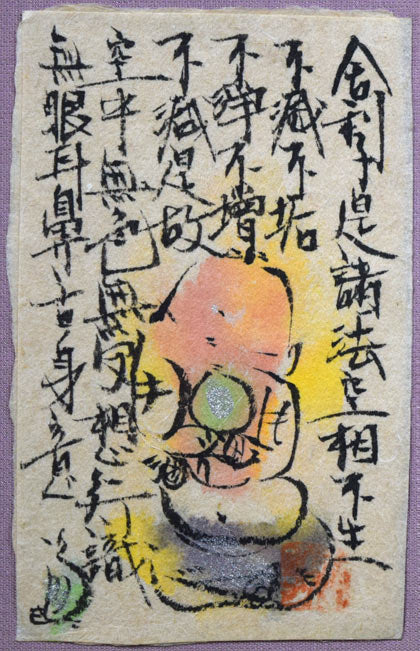 舍利子是諸法空相不生
不滅不垢
不淨不增
不減是故
空中無色無受想行識
無眼耳鼻舌身意